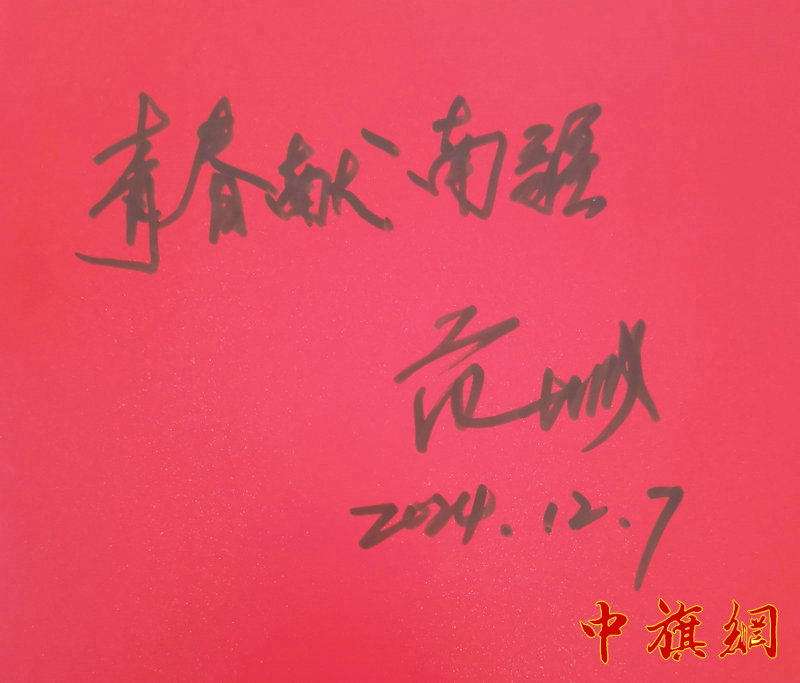 青春献南疆
范
2024.12.7
中旗網